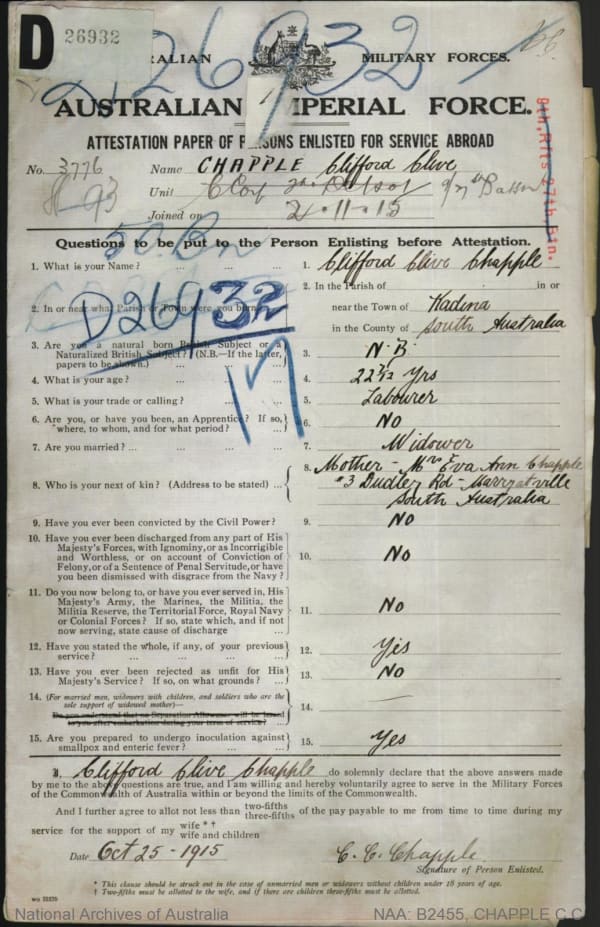 D 26932
D26932
RALIAN MILITARY FORCES.
AUSTRALIAN IMPERIAL FORCE.
ATTESTATION PAPER OF P SONS ENLISTED FOR SERVICE ABROAD
9th. Rfts 27th. Btn.
No. 3776 Name CHAPPLE Clifford Clive
Unit
Joined on 2.11.15
50. Bn
Questions to be put to the Person Enlisting before Attestation.
1. What is your Name? ... ... ... 1. Clifford Clive Chapple
2. In or near what Parish or Town were you born? 2. In the Parish of in or
near the Town of Kadina
in the County of South Australia
D26932
17
3. Are you a natural born British Subject or a
Naturalized British Subject? (N.B.—If the latter,
papers to be shown.) ... ... 3. N. B.
4. What is your age? ... ... ... 4. 22 3/12 Yrs
5. What is your trade or calling? ... ... 5. Labourer
6. Are you, or have you been, an Apprentice? If so,
where, to whom, and for what period? ... 6. No
7. Are you married? ... ... ... ... 7. Widower
8. Who is your next of kin? (Address to be stated) ... 8. Mother - Mrs Eva Ann Chapple
3 Dudley Rd - Marryatville
South Australia
9. Have you ever been convicted by the Civil Power? 9. No
10. Have you ever been discharged from any part of His
Majesty's Forces, with Ignominy, or as Incorrigible
and Worthless, or on account of Conviction of
Felony, or of a Sentence of Penal Servitude, or have
you been dismissed with disgrace from the Navy? 10. No
11. Do you now belong to, or have you ever served in, His
Majesty's Army, the Marines, the Militia, the
Militia Reserve, the Territorial Force, Royal Navy
or Colonial Forces? If so, state which, and if not
now serving, state cause of discharge ... 11. No
12. Have you stated the whole, if any, of your previous
service? ... ... ... ... 12. Yes
13. Have you ever been rejected as unfit for His
Majesty's Service? If so, on what grounds? ... 13. No
14. (For married men, widowers with children, and soldiers who are the
sole support of widowed mother)— 14. —
Do you understand that no Separation Allowance will be issued
to you after embarkation during your term of service?
15. Are you prepared to undergo inoculation against
smallpox and enteric fever? ... ... ... 15. Yes
I, Clifford Clive Chapple do solemnly declare that the above answers made
by me to the above questions are true, and I am willing and hereby voluntarily agree to serve in the Military Forces
of the Commonwealth of Australia within or beyond the limits of the Commonwealth.
And I further agree to allot not less than two-fifths three-fifths of the pay payable to me from time to time during my
service for the support of my wife * † wife and children
Date Oct 25 - 1915 C. C. Chapple
Signature of Person Enlisted.
* This clause should be struck out in the case of unmarried men or widowers without children under 18 years of age.
† Two-fifths must be allotted to the wife, and if there are children three-fifths must be allotted.
National Archives of Australia NAA: B2455, CHAPPLE C C